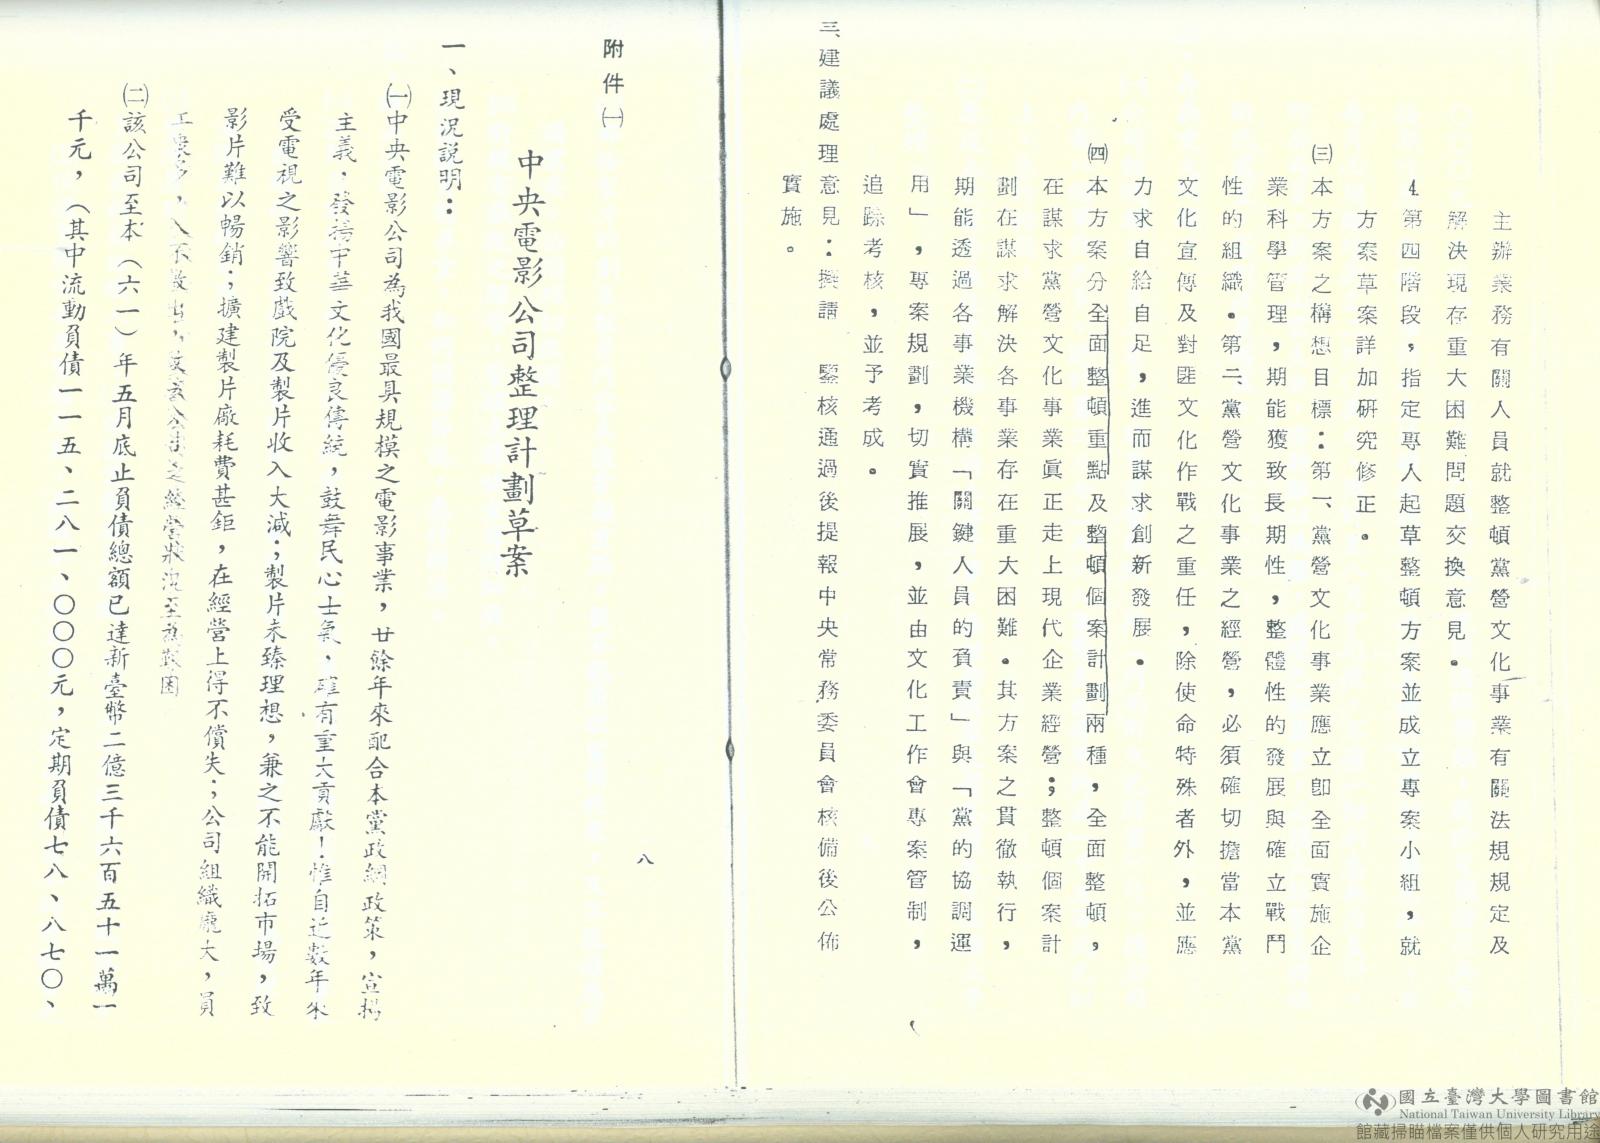 主辦業務有關人員就整頓黨營文化事業有關法規規定及
解決現存重大困難問題交換意見。
4.第四階段，指定專人起草整頓方案並成立專案小組，就
方案草案詳加研究修正。
㈢本方案之構想目標：第一、黨營文化事業應立即全面實施企
業科學管理，期能獲致長期性，整體性的發展與確立戰鬥
性的組織。第二、黨營文化事業之經營，必須確切擔當本黨
文化宣傳及對匪文化作戰之重任，除使命特殊者外，並應
力求自給自足，進而謀求創新發展。
㈣本方案分全面整頓重點及整頓個案計劃兩種，全面整頓，
在謀求黨營文化事業眞正走上現代企業經營；整頓個案計
劃在謀求解決各事業存在重大困難。其方案之貫徹執行，
期能透過各事業機構「關鍵人員的負責」與「黨的協調運
用」，專案規劃，切實推展，並由文化工作會專案管制，
追踪考核，並予考成。
三、建議處理意見：擬請　鑒核通過後提報中央常務委員會核備後公佈
實施。
八
附件㈠
中央電影公司整理計劃草案
一、現況說明：
㈠中央電影公司為我國最具規模之電影事業，廿餘年來配合本黨政綱政策，宣揚
主義，發揚中華文化優良傳統，鼓舞民心士氣，確有重大貢獻！惟自近數年來
受電視之影響致戲院及製片收入大減；製片未臻理想，兼之不能開拓市場，致
影片難以暢銷；擴建製片廠耗費甚鉅，在經營上得不償失；公司組織龐大，員
工眾多，入不敷出，故該公司之經營狀況至為艱困
㈡該公司至本（六一）年五月底止負債總額已達新臺幣二億三千六百五十一萬一
千元，（其中流動負債一一五、二八一、〇〇〇元，定期負債七八、八七〇、
國立臺灣大學圖書館
National Taiwan University Library
館藏掃瞄檔案僅供個人研究用途